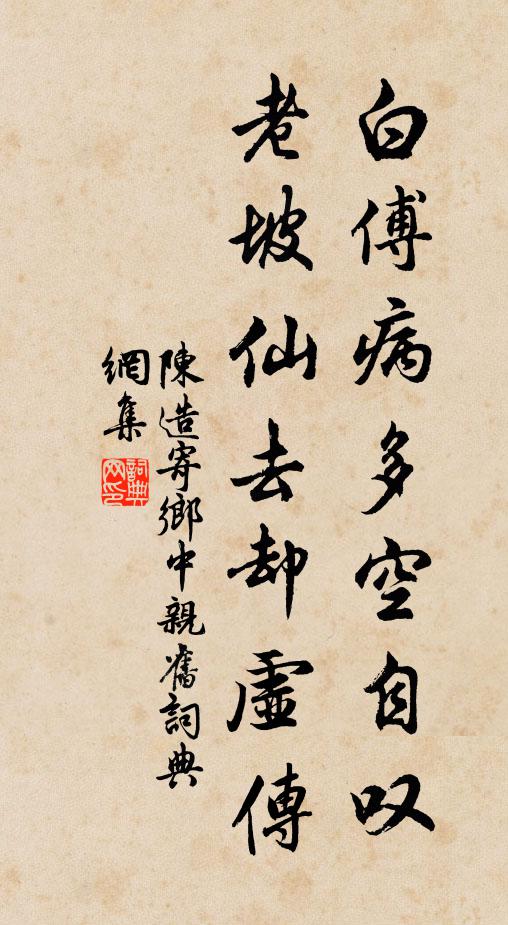 白傅病多空自叹
老坡仙去却虛傳
陳造寄鄉中親舊詞典
網集
詞典
网印